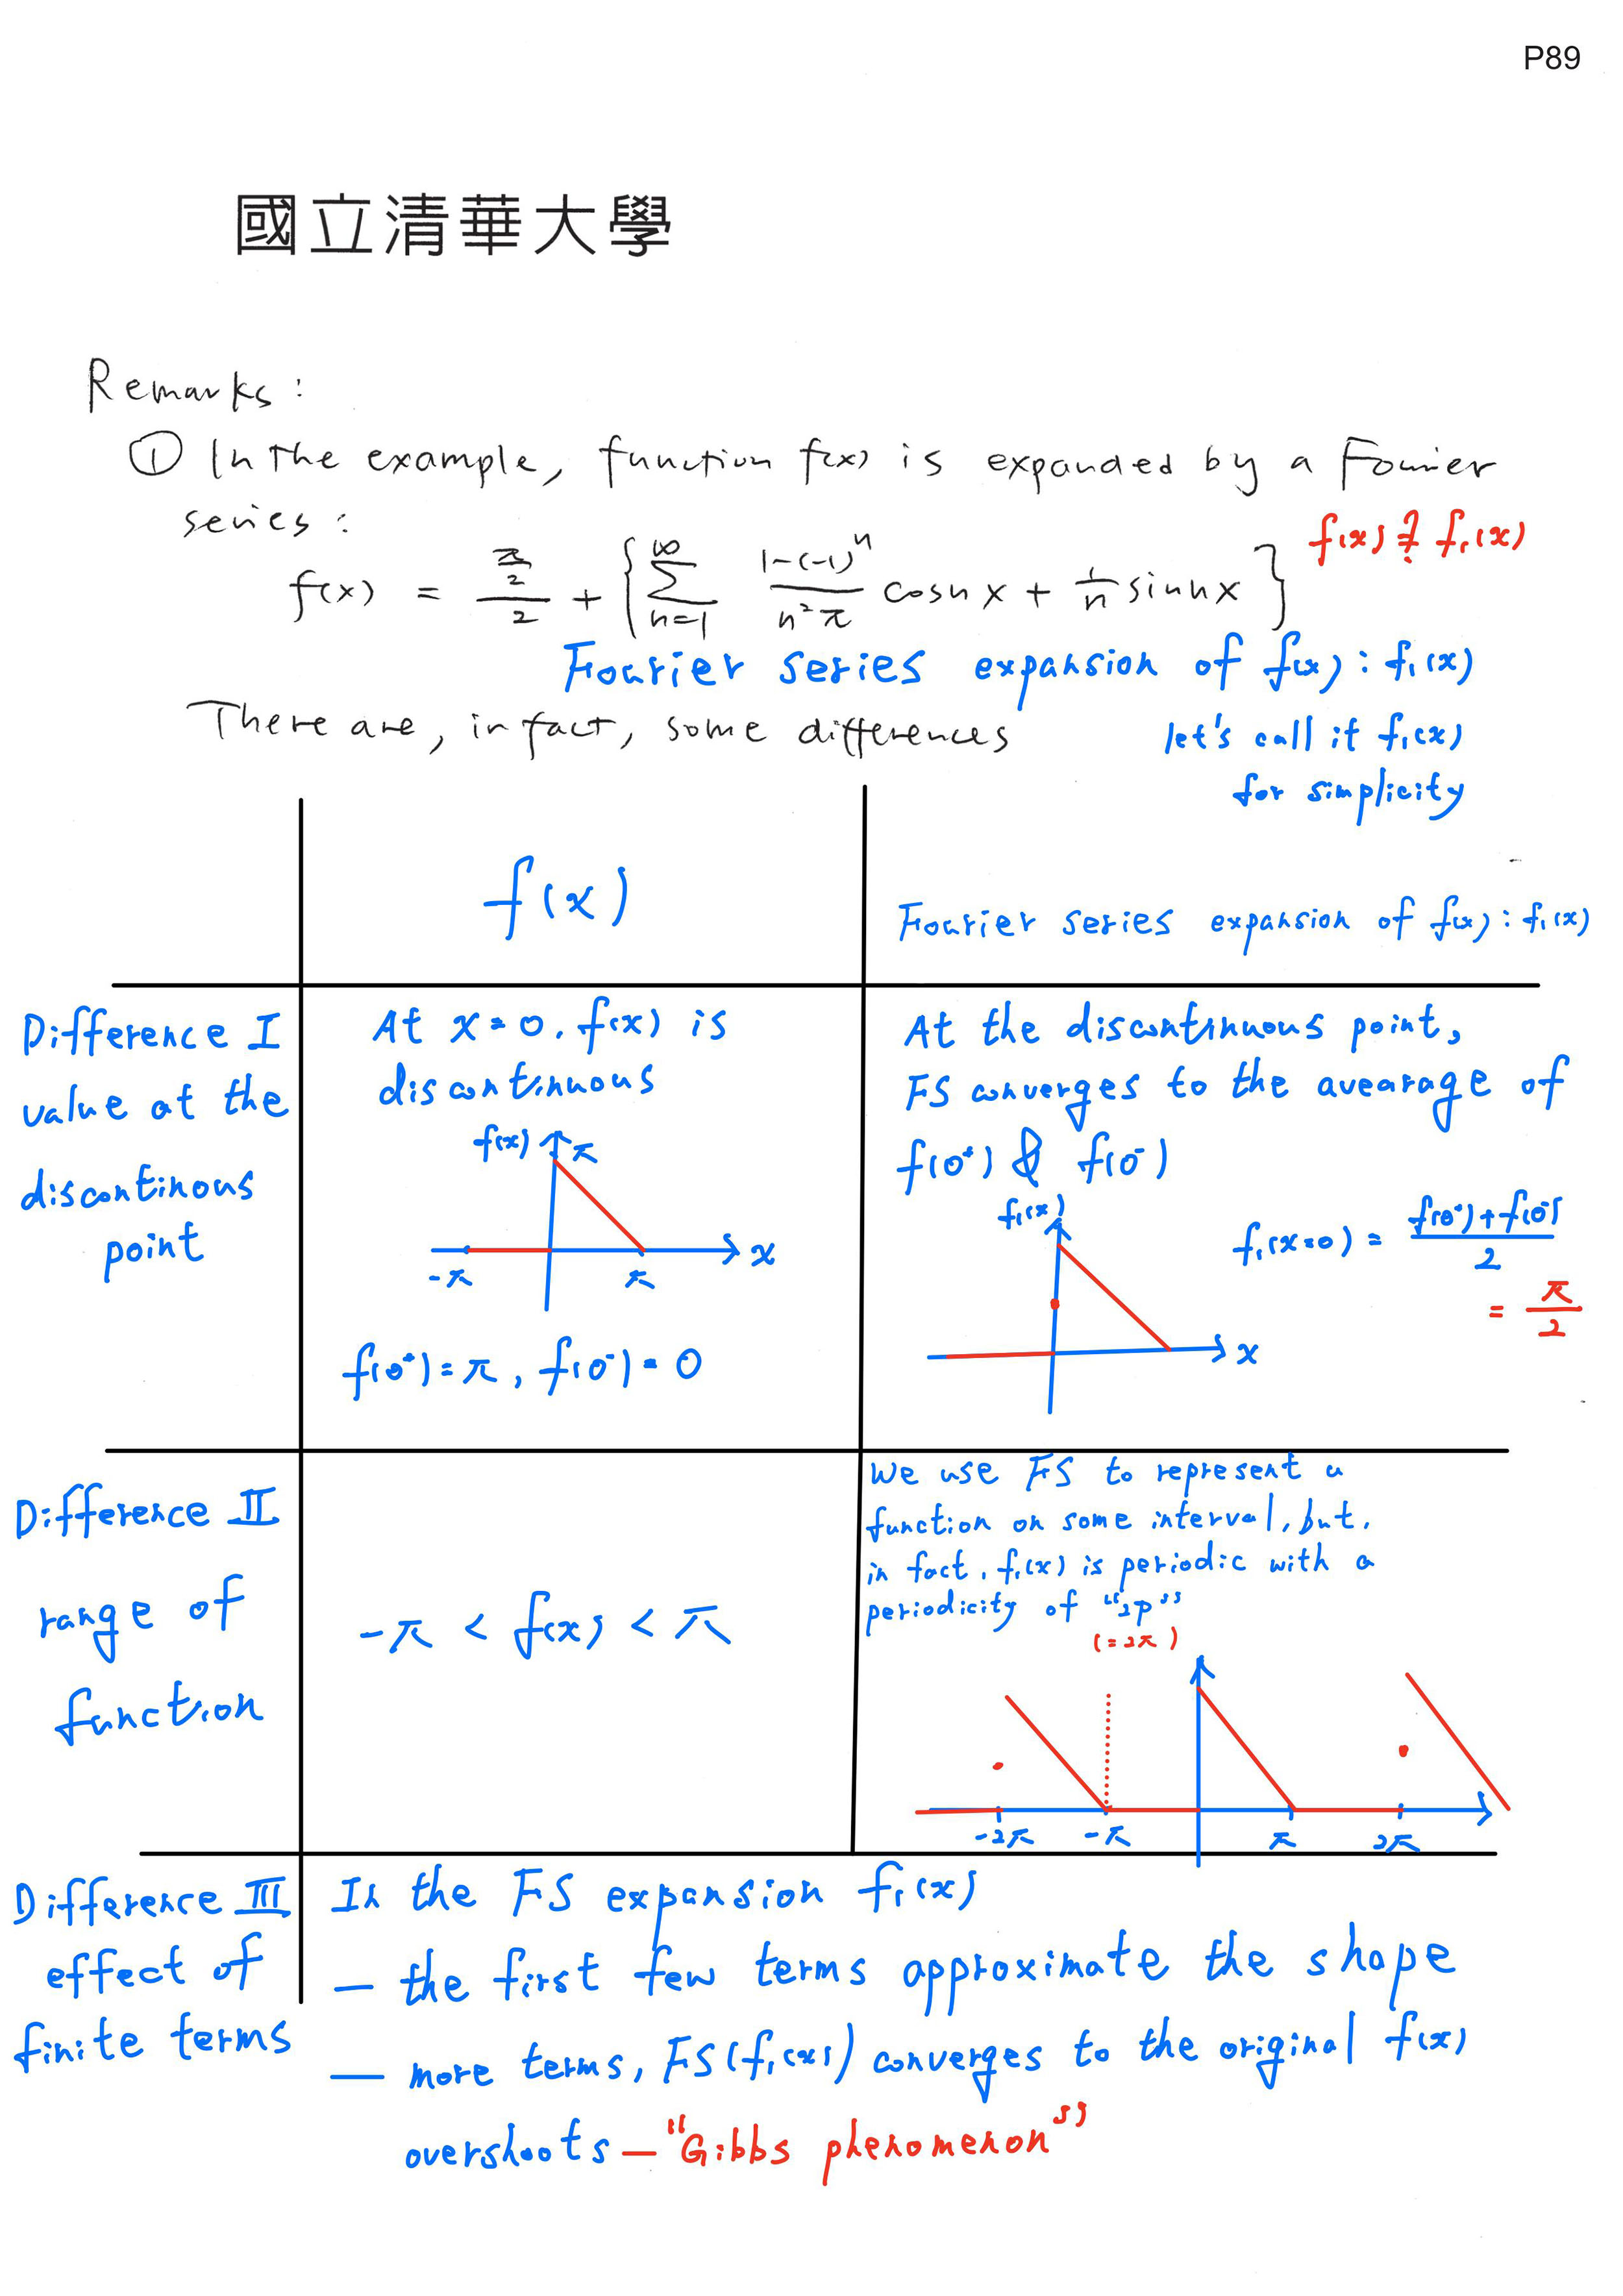 P89
國立清華大學
Remarks :
① In the example, function f(x) is expanded by a Fourier
series :
f(x) = \frac{\frac{π}{2}}{2} + { \sum_{n=1}^{∞} \frac{1-(-1)^n}{n^2 π} cos nx + \frac{1}{n} sin nx }
f(x) ≟ f₁(x)
Fourier series expansion of f(x) : f₁(x)
There are, in fact, some differences
let's call it f₁(x)
for simplicity
f(x)
Fourier series expansion of f(x) : f₁(x)
Difference I
value at the
discontinous
point
At x=0, f(x) is
discontinuous
f(x)
π
-π
π
x
f(0⁺) = π, f(0⁻) = 0
At the discontinuous point,
FS converges to the avearage of
f(0⁺) & f(0⁻)
f₁(x)
x
f₁(x=0) = \frac{f(0⁺)+f(0⁻)}{2}
= \frac{π}{2}
Difference II
range of
function
-π < f(x) < π
We use FS to represent a
function on some interval, but,
in fact, f₁(x) is periodic with a
periodicity of "2p"
(=2π)
-2π
-π
π
2π
Difference III
effect of
finite terms
In the FS expansion f₁(x)
— the first few terms approximate the shape
— more terms, FS(f₁(x)) converges to the original f(x)
overshoots — "Gibbs phenomenon"